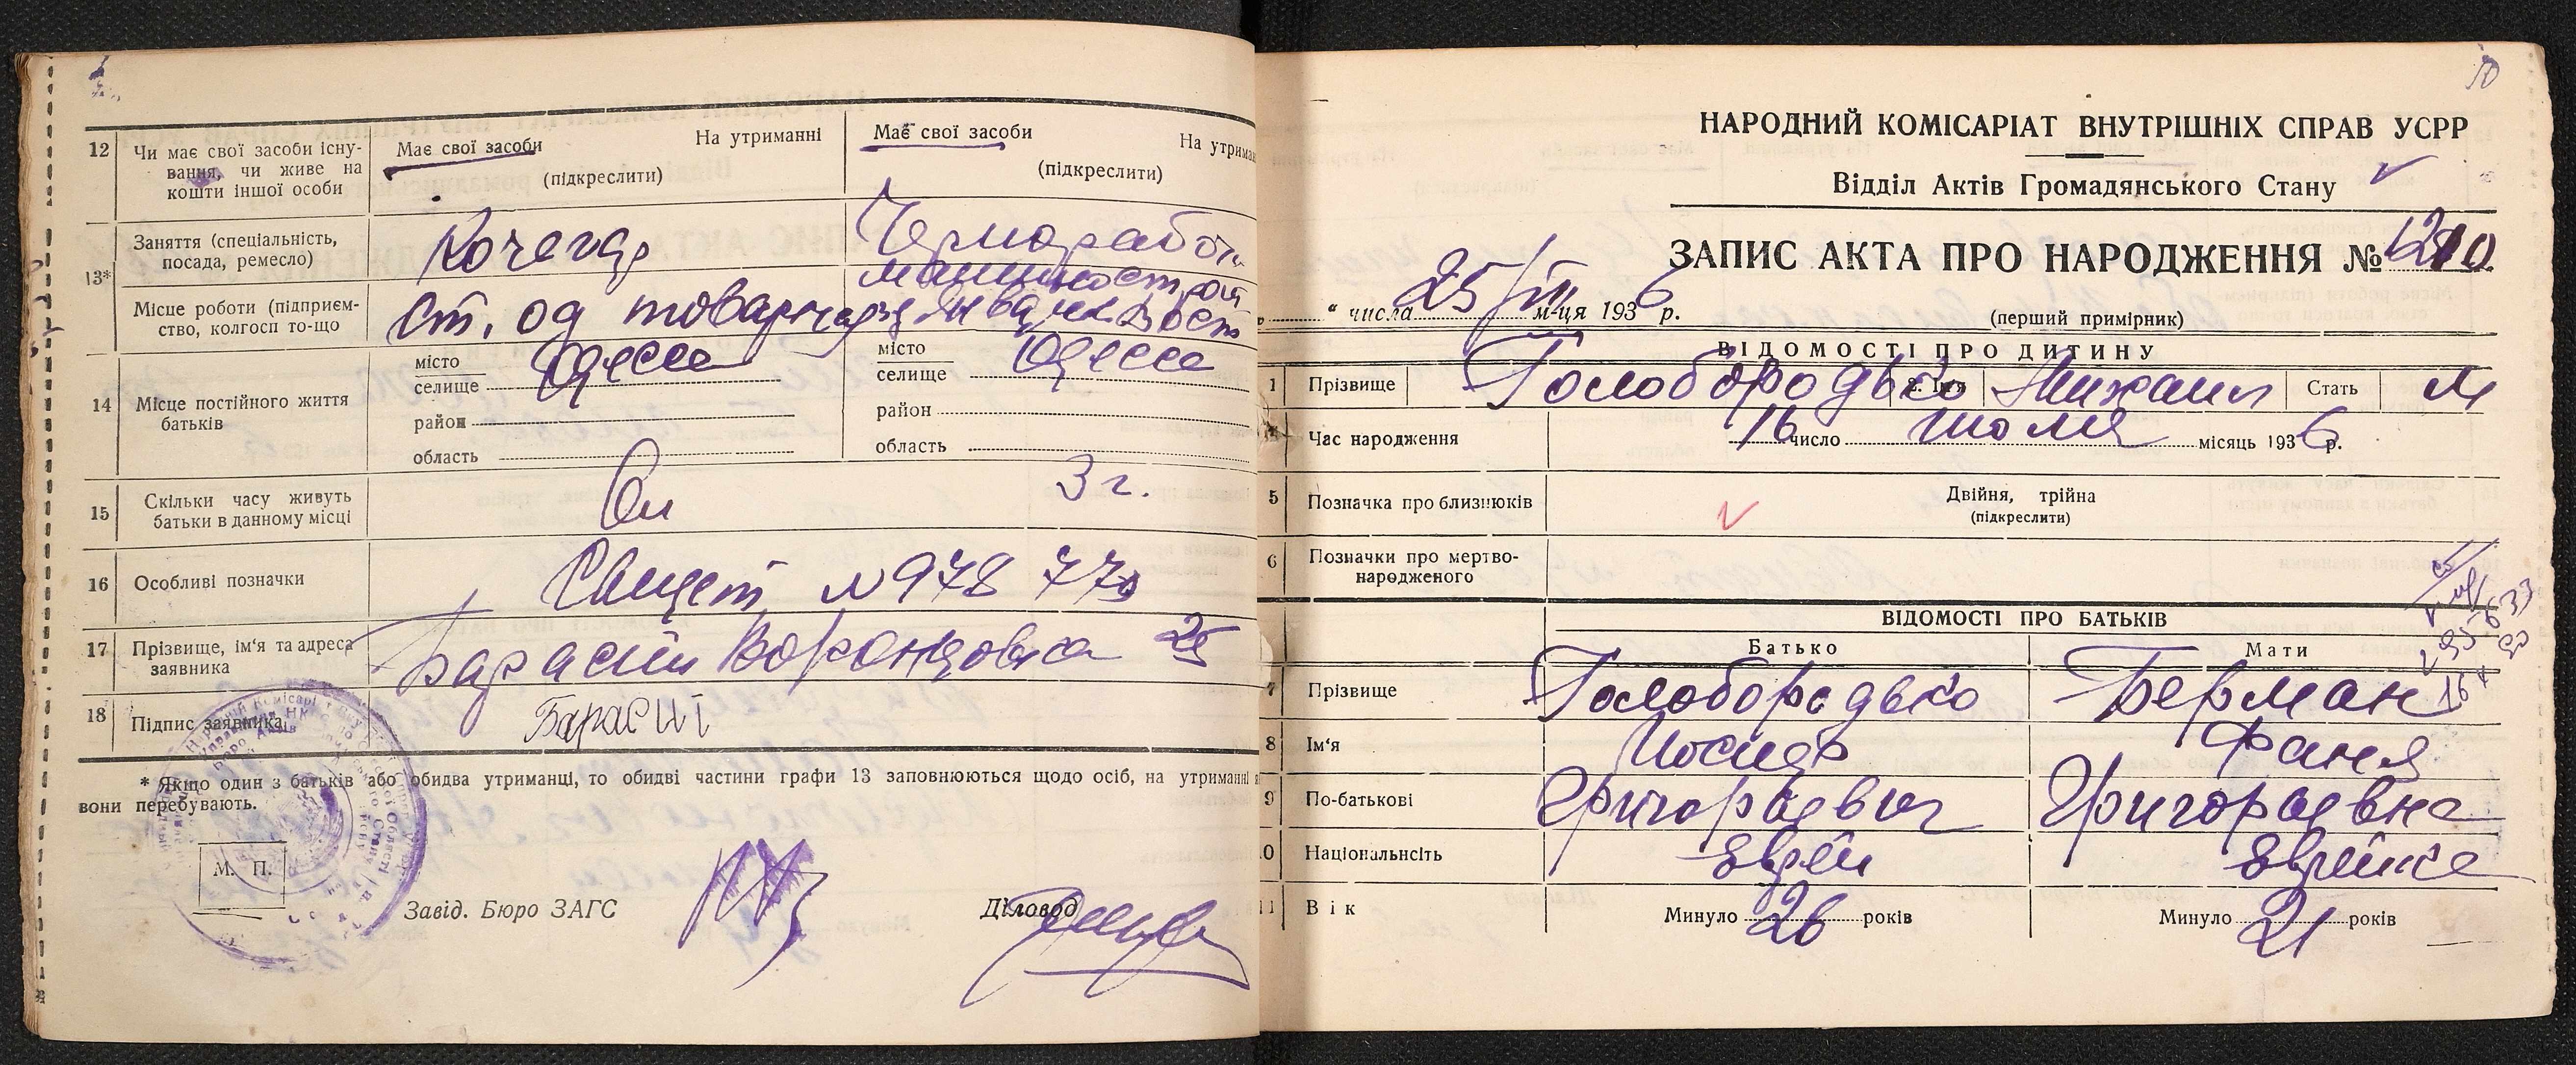 12 Чи має свої засоби існу-
вання, чи живе на
кошти іншої особи
Має свої засоби На утриманні
(підкреслити)
Має свої засоби На утриман
(підкреслити)
13* Заняття (спеціальність,
посада, ремесло)
Кочегар
Чернорабоч
Місце роботи (підприєм-
ство, колгосп то-що
ст. од товарная
14 Місце постійного життя
батьків
місто
селище Одесса
район
область
місто
селище Одесса
район
область
15 Скільки часу живуть
батьки в данному місці
3 г.
16 Особливі позначки
N 978 770
17 Прізвище, ім'я та адреса
заявника
Барасій Воронцовка 25
18 Підпис заявника
Барасій
* Якщо один з батьків або обидва утриманці, то обидві частини графи 13 заповнюються щодо осіб, на утриманні
вони перебувають.
М. П.
Завід. Бюро ЗАГС
Діловод
10
НАРОДНИЙ КОМІСАРІАТ ВНУТРІШНІХ СПРАВ УСРР
Відділ Актів Громадянського Стану
ЗАПИС АКТА ПРО НАРОДЖЕННЯ № 1210
" числа 25/VII м-ця 1936 р.
(перший примірник)
ВІДОМОСТІ ПРО ДИТИНУ
1 Прізвище Голобородько 2. Ім'я Михаил Стать М
Час народження 16 число июля місяць 1936 р.
5 Позначка про близнюків
Двійня, трійна
(підкреслити)
6 Позначки про мертво-
народженого
ВІДОМОСТІ ПРО БАТЬКІВ
Батько Мати
7 Прізвище Голобородько Берман
8 Ім'я Иосиф Фаня
9 По-батькові Григорьевич Григорьевна
10 Національність Еврей Еврейка
11 Вік Минуло 26 років Минуло 21 років